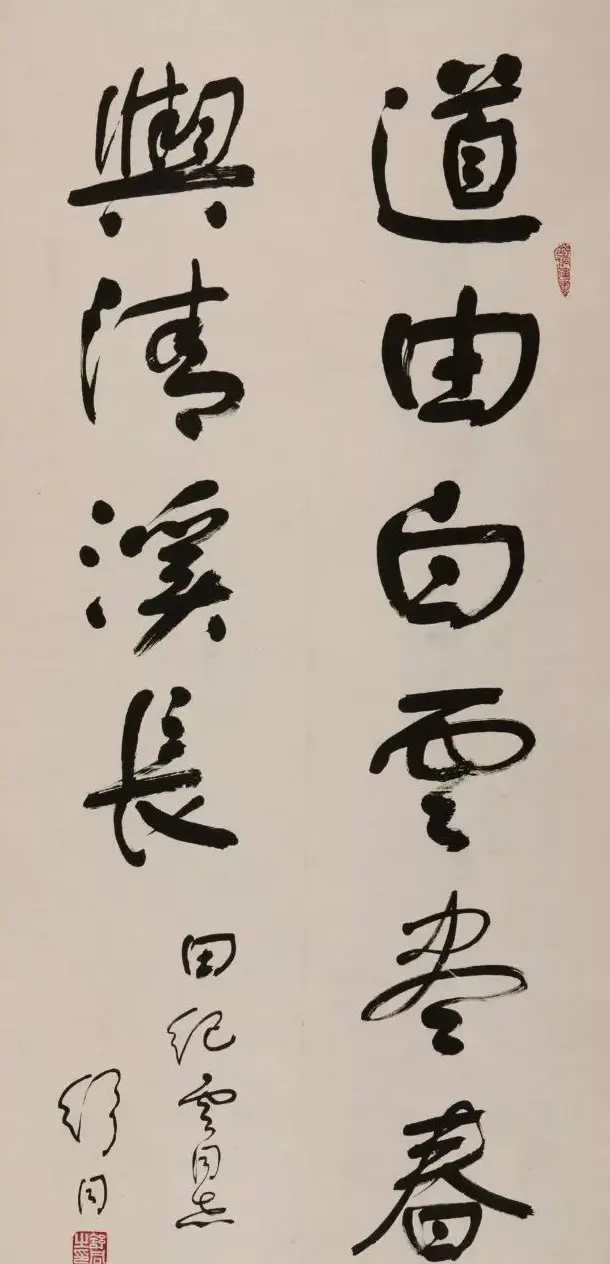 道由白雲盡春
與清溪長
田紀雲同志
舒同
舒同之印